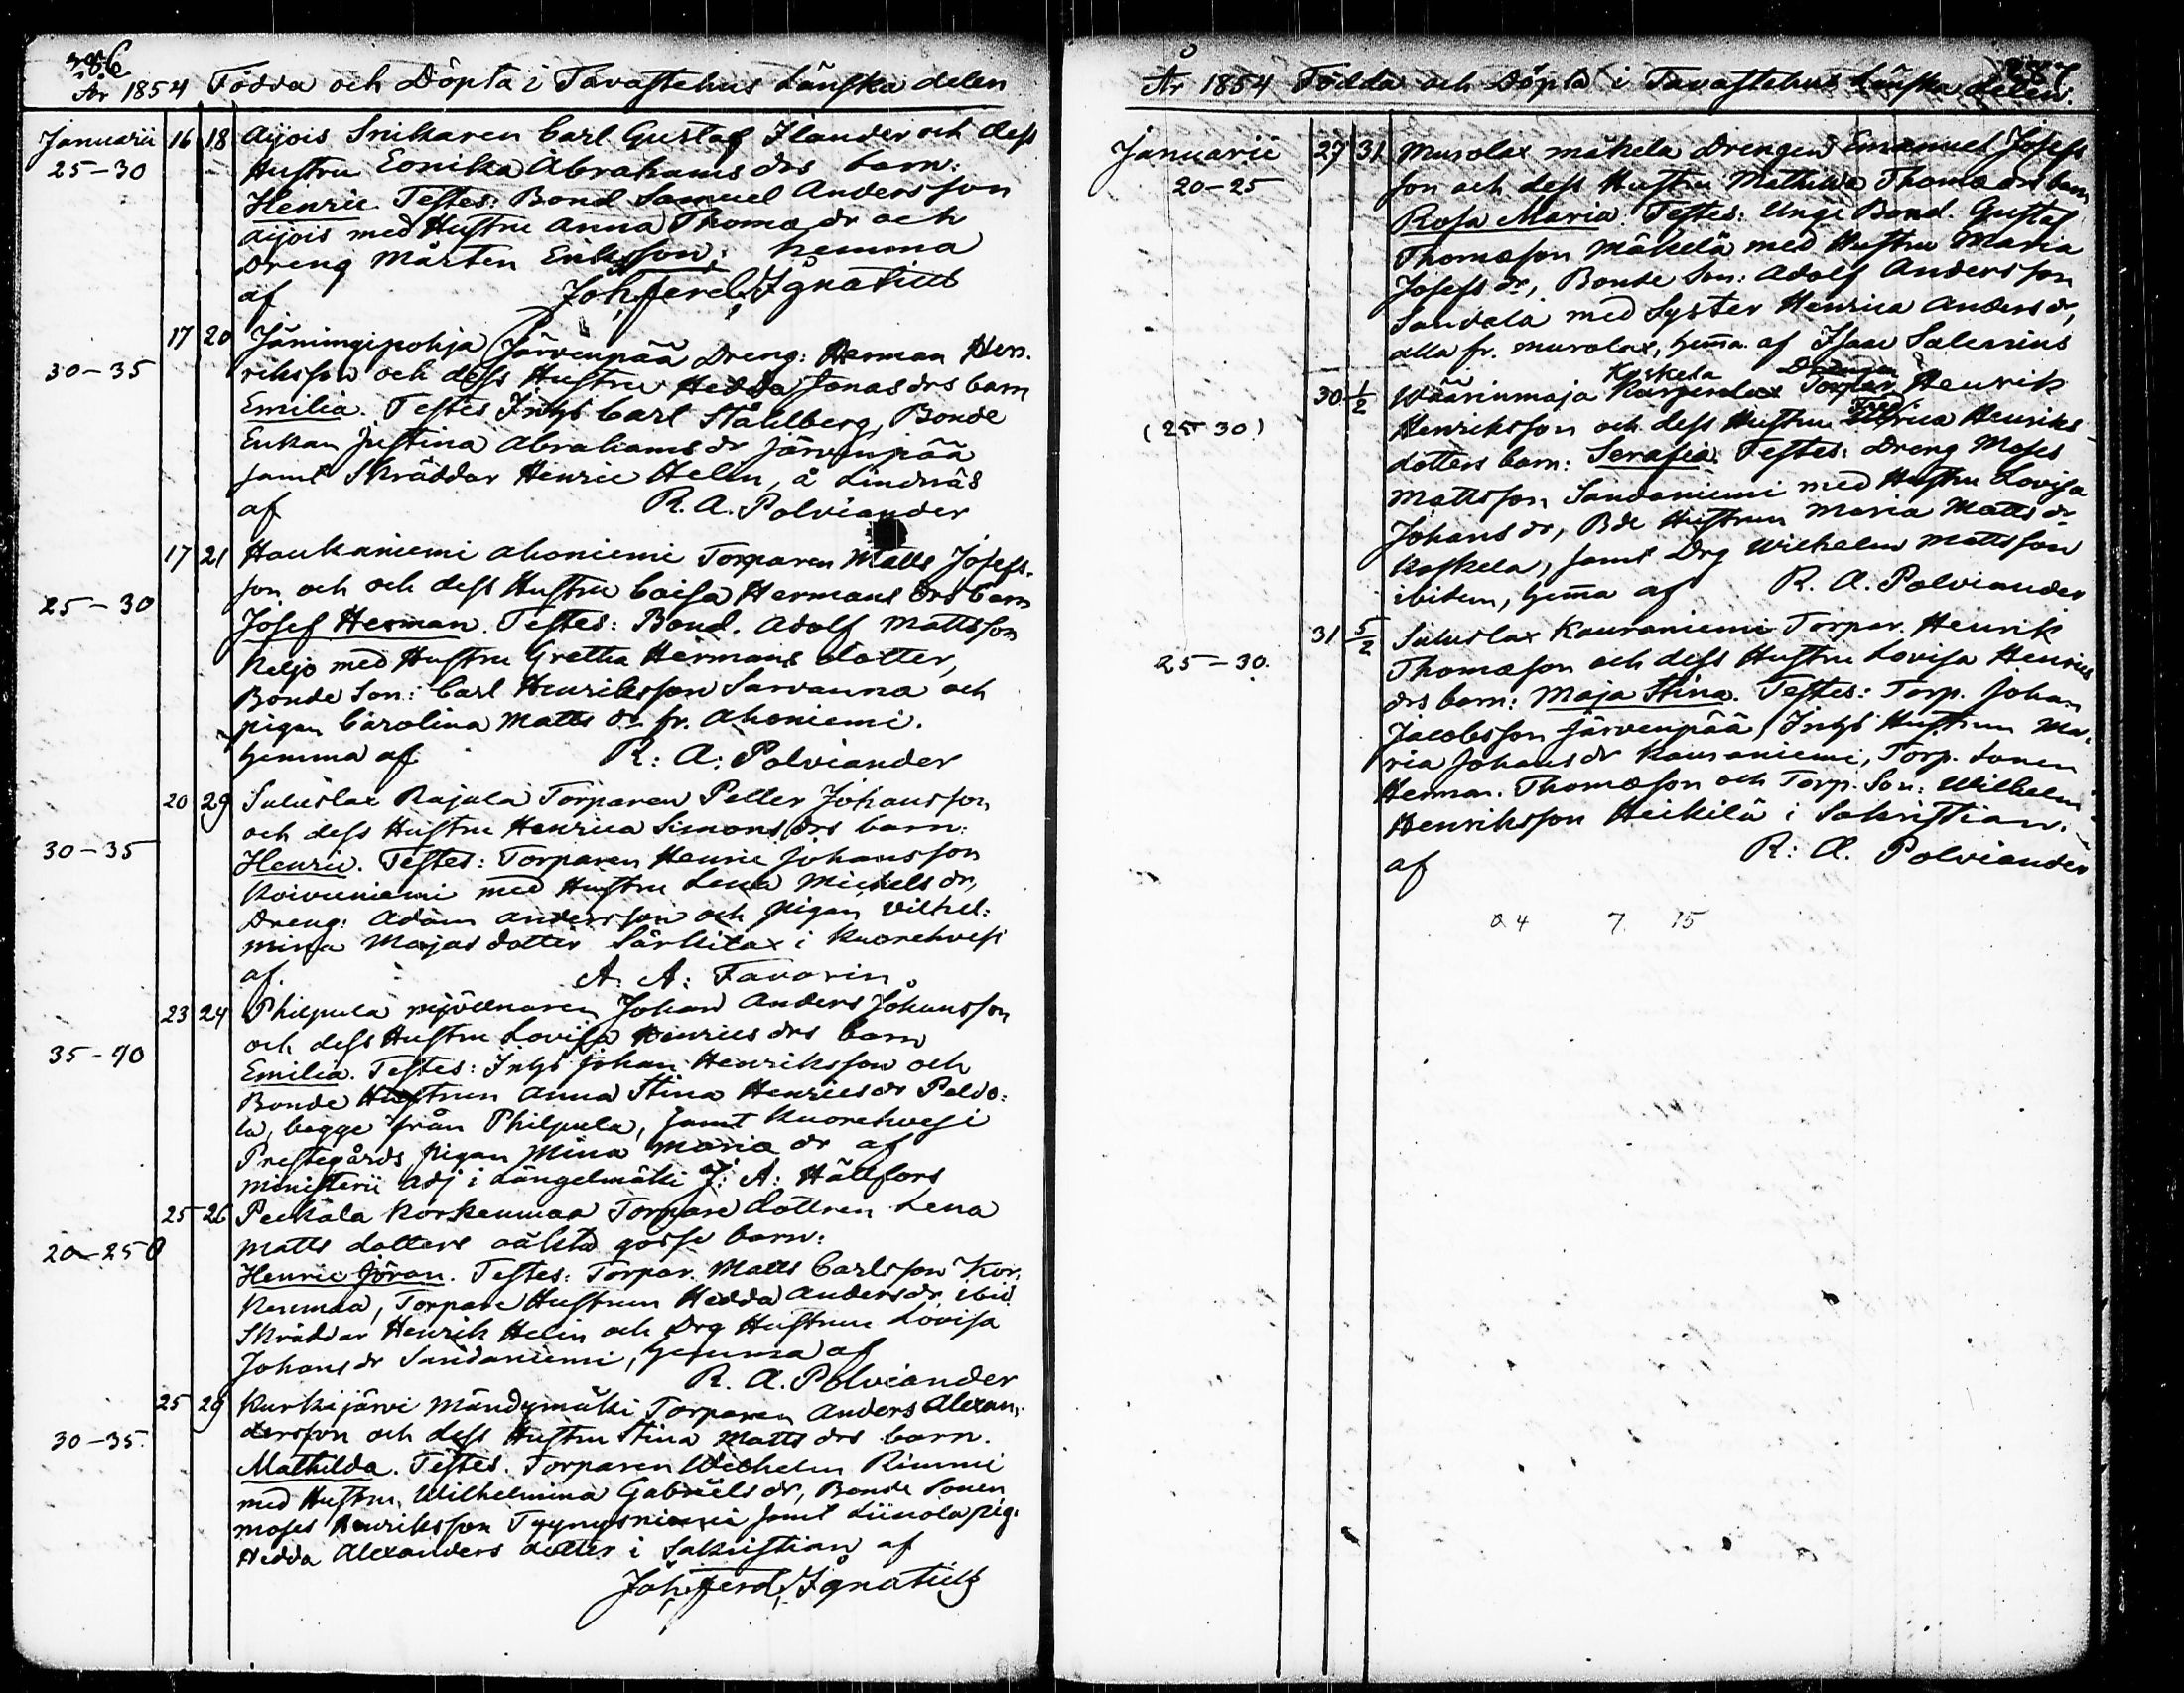 År 1854 Födda och Döpta i Tavastehus Länska delen
Januarii 16 18 Aijois Snikaren Carl Gustaf Ilander och dess
25-30 Hustru Eonika Abrahams drs barn:
Henric. Testes: Bond Samuel Andersson
Aijois med Hustru Anna Thomæ dr och
Dreng Mårten Eriksson; hemma
af Joh, Ferd, Ignatius
17 20 Jämingipohja Järvenpää Dreng: Herman Hen-
30-35 riksson och dess Hustru Hedda Jonas drs barn
Emilia. Testes Inhs Carl Ståhlberg, Bonde
Enkan Justina Abrahams dr Järvenpää
samt Skräddar Henric Helin, å Lindnäs
af R. A. Polviander
17 21 Haukaniemi Ahoniemi Torparen Matts Josefs-
son och och dess Hustru Caisa Hermans drs barn
25-30 Josef Herman. Testes: Bond. Adolf Mattsson
Keljo med Hustru Gretha Hermans dotter,
Bonde Son: Carl Henriksson Sarvanna och
pigan Carolina Matts dr fr. Ahoniemi.
hemma af R: A: Polviander
20 29 Suluslax Rajala Torparen Petter Johansson
och dess Hustru Henrica Simons drs barn:
30-35 Henric. Testes: Torparen Henric Johansson
Koivuniemi med Hustru Lena Michels dr,
Dreng: Adam Andersson och pigan Vilhel:
mina Majas dotter Särkilax i Kuorehvesi
af A. A: Favorin
23 24 Philpula mjölnaren Johan Anders Johansson
och dess Hustru Lovisa Henrics drs barn
35-40 Emilia. Testes: Inhs Johan Henriksson och
Bonde Hustrun Anna Stina Henrics dr Peldo:
la, begge från Philpula, samt Kuorehvesi
Prestegårds pigan Mina Maria dr af
Ministerii Adj i Längelmäki J: A: Hällfors
25 26 Peckala Korkeamaa Torpare dottren Lena
20-25 Matts dotters oäkta gosse barn:
Henric Jöran. Testes: Torpar. Matts Carlsson Kor:
keamaa, Torpare Hustrun Hedda Anders dr ibid
Skräddar Henrik Helin och Drg Hustrun Lovisa
Johans dr Sandaniemi, hemma af
R. A. Polviander
25 29 Kurkijärvi Mändymäki Torparen Anders Alexan:
30-35 dersson och dess Hustru Stina Matts drs barn.
Mathilda. Testes. Torparen Wilhelm Rimmi
med Hustru Wilhelmina Gabriels dr, Bonde Sonen
Moses Henriksson Tyynysniemi samt Liinola pig:
Hedda Alexanders dotter i Sakristian af
Joh, Ferd, Ignatius
År 1854 Födda och Döpta i Tavastehus Länska delen.
Januarii 27 31 Murolax Mäkelä Drengen Emanuel Josefs
20-25 son och dess Hustru Mathilda Thomæ drs barn
Rosa Maria. Testes: Unge Bond. Gustaf
Thomæson Mäkelä med Hustru Maria
Josefs dr, Bonde Son: Adolf Andersson
Sandala med Syster Henrica Anders dr,
alla fr. Murolax, hema af Isaac Salenius
Koskela Drengen
30 1/2 Wäärinmaja Torpar Henrik
(25-30) Henriksson och dess Hustru Henriks
dotters barn: Serafia. Testes: Dreng Moses
Mattsson Sandaniemi med Hustru Lovisa
Johans dr, Bde Hustrun Maria Matts dr
Koskela, samt Drg Wilhelm Mattsson
ibidem, hema af R. A. Polviander
31 5/2 Suluslax Kauraniemi Torpar. Henrik
25-30. Thomæson och dess Hustru Lovisa Henrics
drs barn: Maja Stina. Testes: Torp. Johan
Jacobsson Järvenpää, Inhs Hustrun Ma-
ria Johans dr Kauraniemi, Torp. Sonen
Herman. Thomæson och Torp. Son: Wilhelm
Henriksson Heikilä i Sakristian.
af R: A. Polviander
7. 15